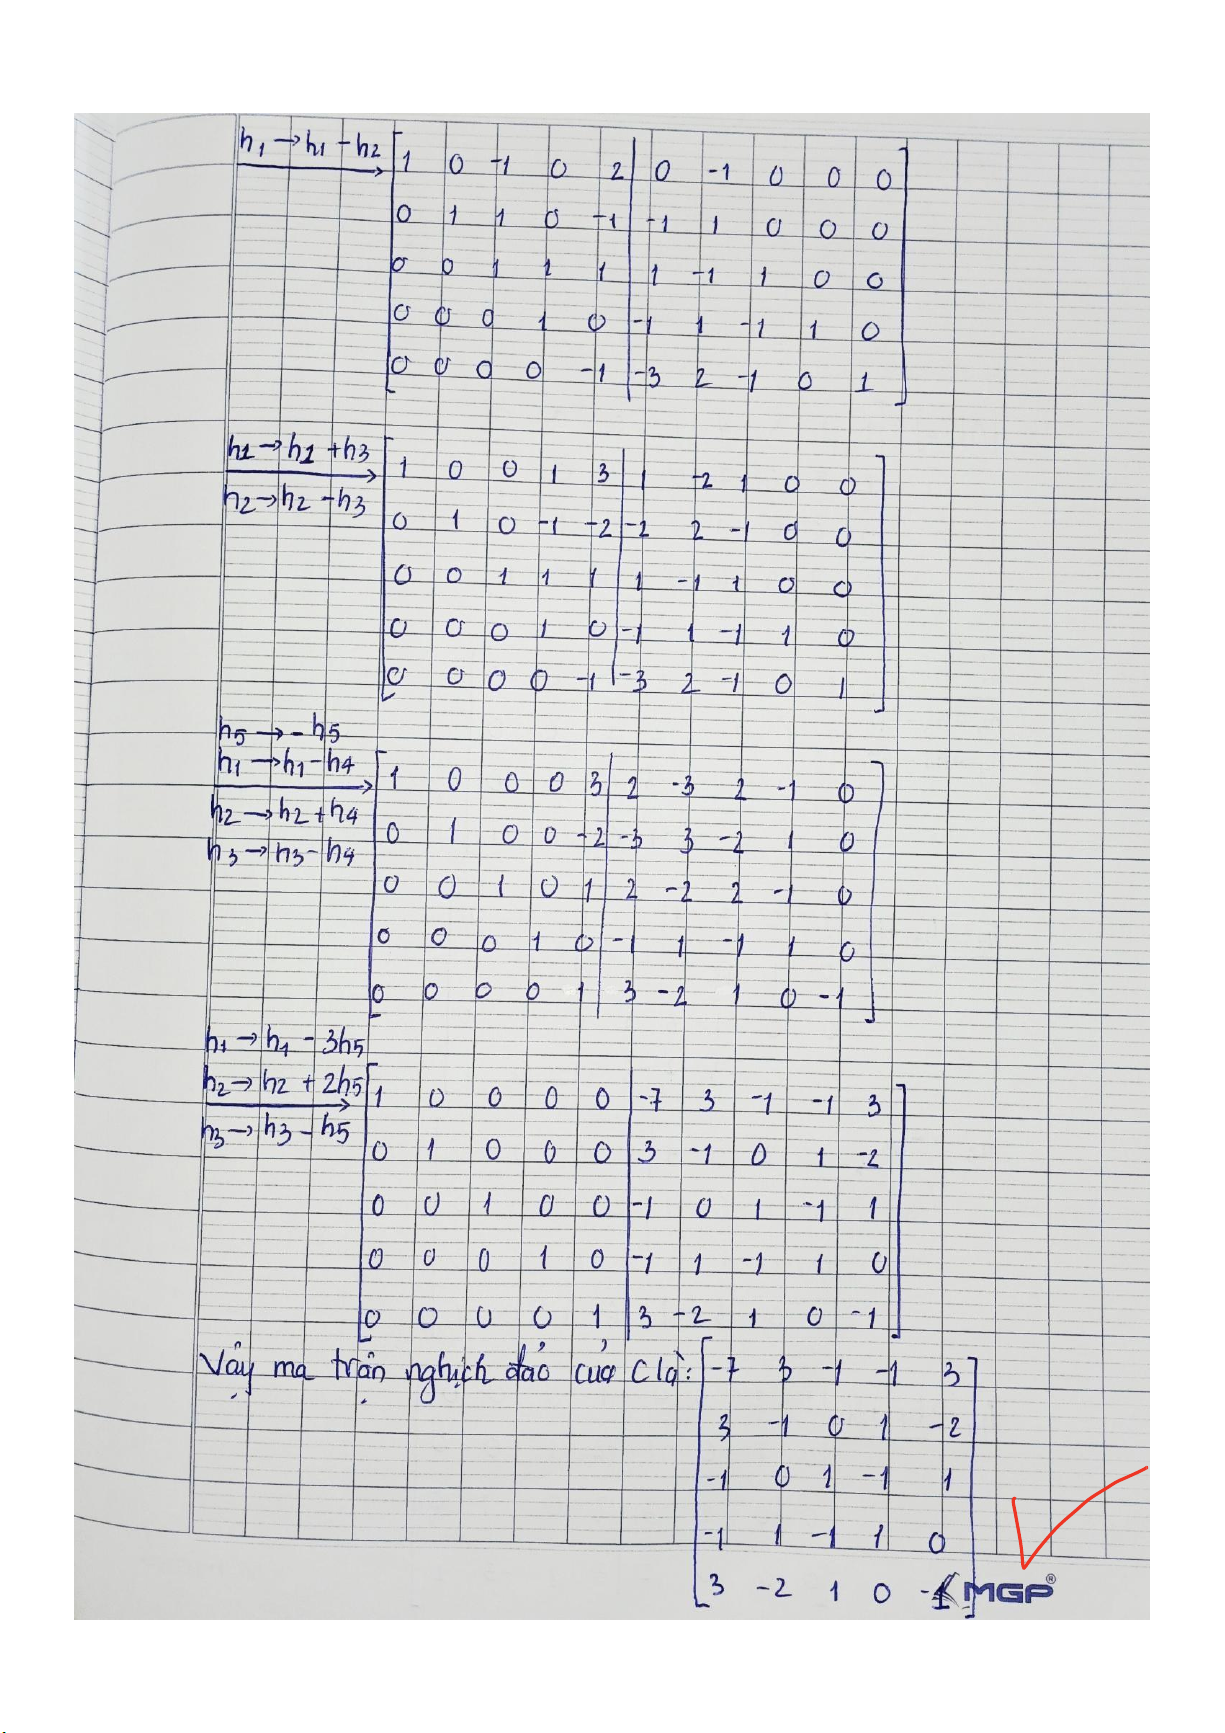 h1 → h1 - h2 [ 1 0 -1 0 2 | 0 -1 0 0 0 ]
0 1 1 0 -1 | -1 1 0 0 0
0 0 1 1 1 | 1 -1 1 0 0
0 0 0 1 0 | -1 1 -1 1 0
0 0 0 0 -1 | -3 2 -1 0 1
h1 → h1 + h3 [ 1 0 0 1 3 | 1 -2 1 0 0 ]
h2 → h2 - h3
0 1 0 -1 -2 | -2 2 -1 0 0
0 0 1 1 1 | 1 -1 1 0 0
0 0 0 1 0 | -1 1 -1 1 0
0 0 0 0 -1 | -3 2 -1 0 1
h5 → - h5
h1 → h1 - h4 [ 1 0 0 0 3 | 2 -3 2 -1 0 ]
h2 → h2 + h4
0 1 0 0 -2 | -3 3 -2 1 0
h3 → h3 - h4
0 0 1 0 1 | 2 -2 2 -1 0
0 0 0 1 0 | -1 1 -1 1 0
0 0 0 0 1 | 3 -2 1 0 -1
h1 → h1 - 3h5
h2 → h2 + 2h5 [ 1 0 0 0 0 | -7 3 -1 -1 3 ]
h3 → h3 - h5
0 1 0 0 0 | 3 -1 0 1 -2
0 0 1 0 0 | -1 0 1 -1 1
0 0 0 1 0 | -1 1 -1 1 0
0 0 0 0 1 | 3 -2 1 0 -1
Vậy ma trận nghịch đảo của C là: [ -7 3 -1 -1 3 ]
3 -1 0 1 -2
-1 0 1 -1 1
-1 1 -1 1 0
3 -2 1 0 -1
MGP®